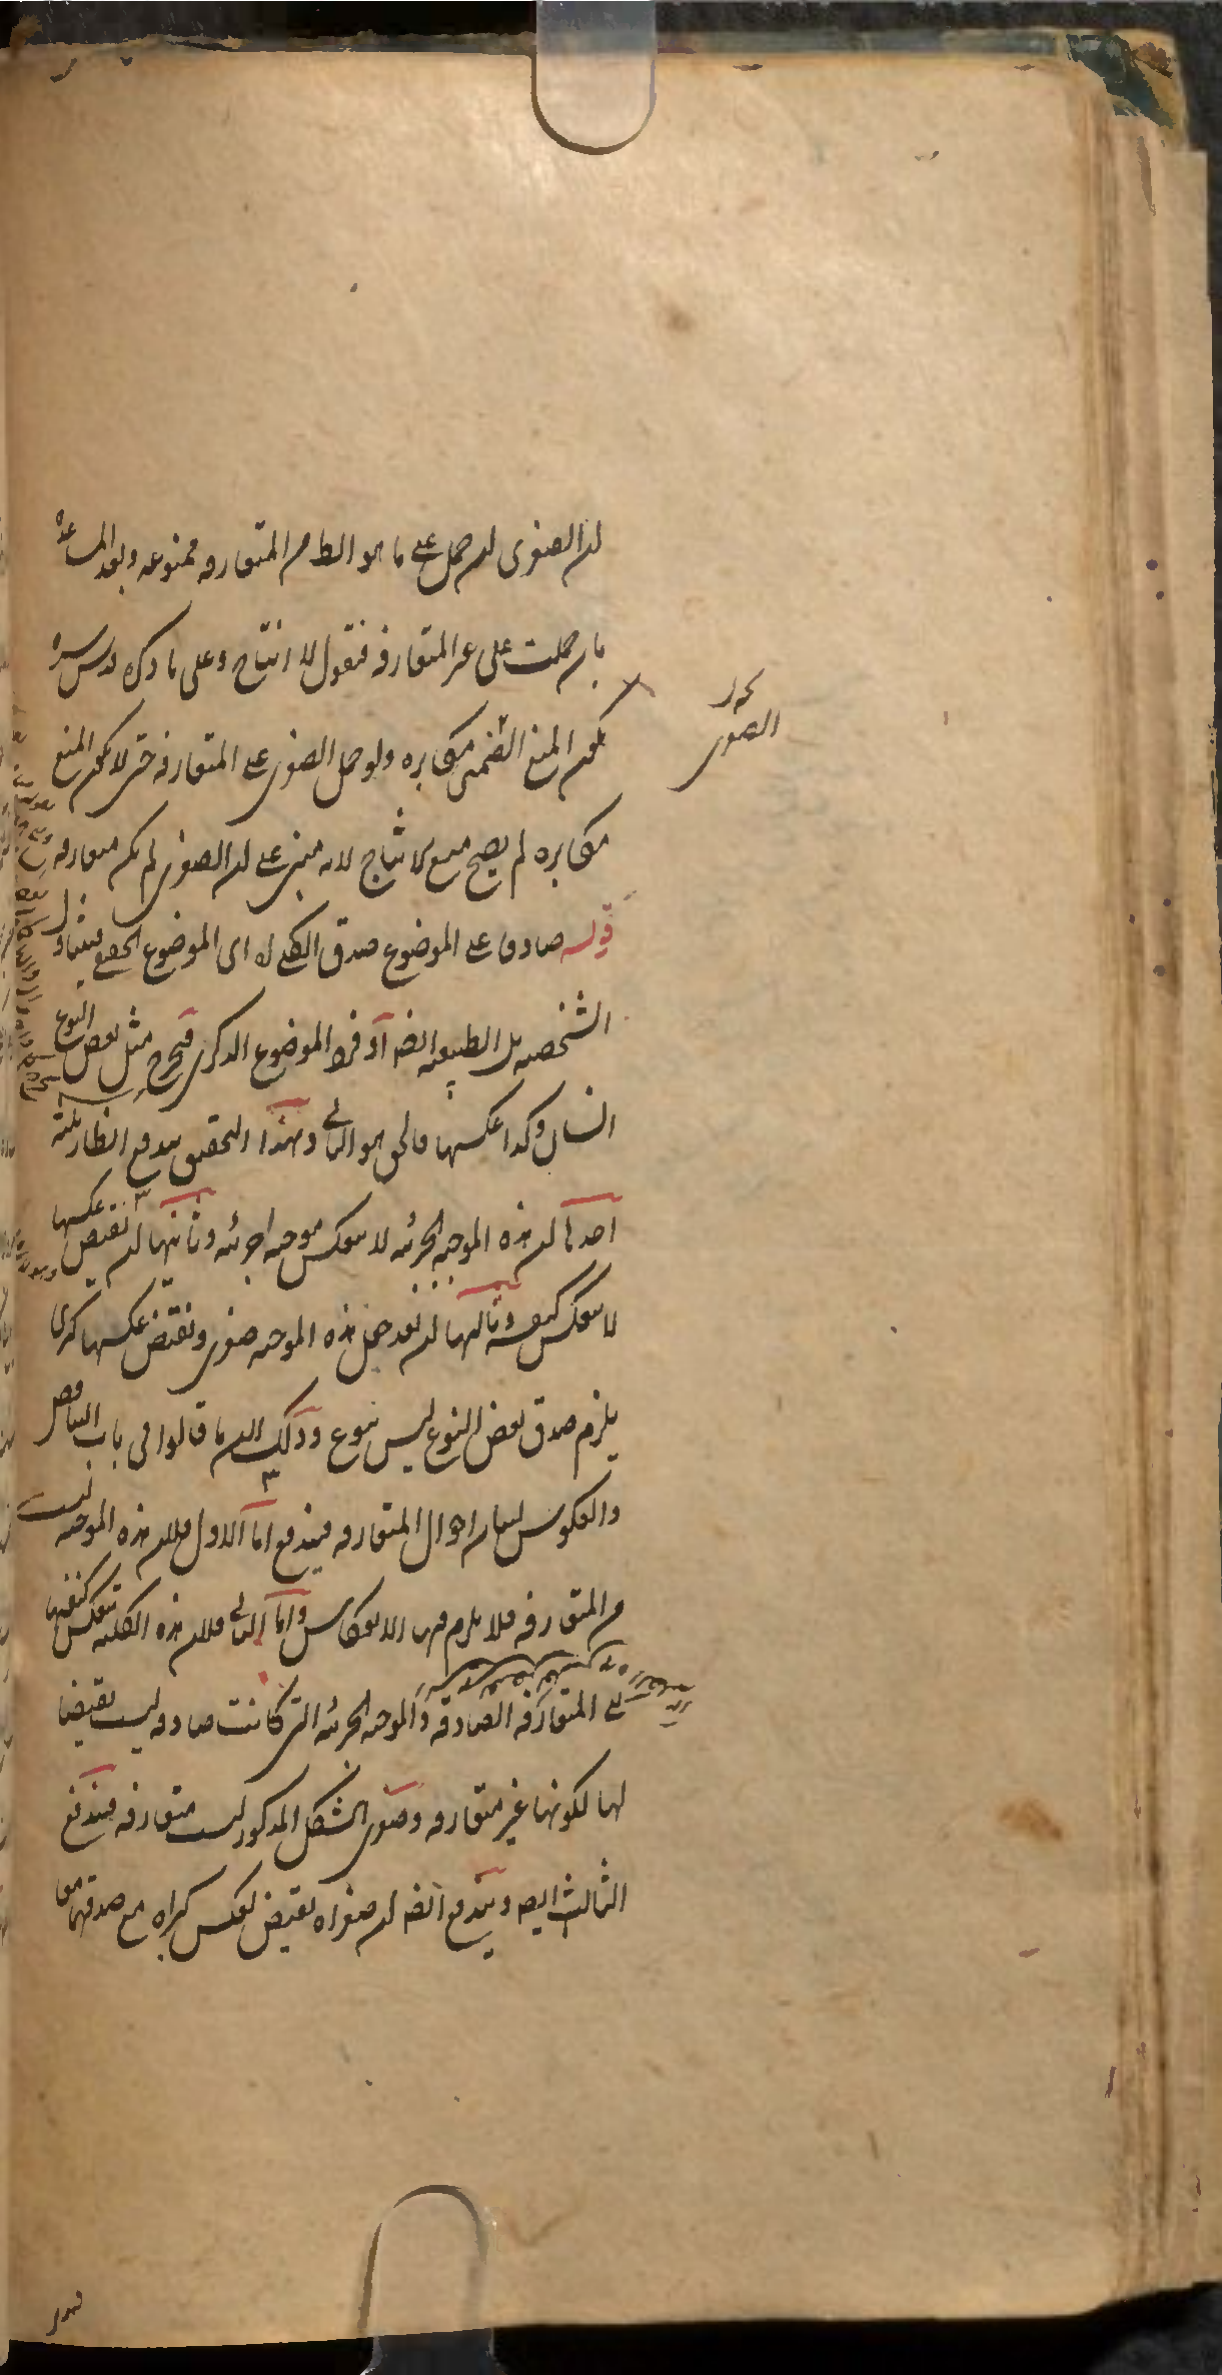 ان الصغرى ان حمل على ما هو الظ من المتعارفه ممنوعه وبعد المساعدة
بان حملت على غير المتعارفه فنقول لا انتاج وعلى ما ذكره قدس سره
يكون المنع الضمني مكابره ولو حمل الصغرى على المتعارفه حتى لا يكون المنع
مكابره لم يصح منع الانتاج لانه مبنى على ان الصغرى لم يكن متعارفه
قوله صادقا على الموضوع صدق الكلى له اى الموضوع الحقيقي فيتناول
الشخصيه بل الطبيعيه ايضا افراد الموضوع الذكرى فيخرج مثل بعض النوع
انسان وكذا عكسها فالحق هو الثاني وبهذا التحقيق يندفع انظار ثلثة
احدها ان هذه الموجبه الجزئيه لا ينعكس موجبه جزئيه وثانيها ان نقيض عكسها
لا ينعكس كنفسه وثالثها ان بعد جعل هذه الموجبه صغرى ونقيض عكسها كبرى
يلزم صدق بعض النوع ليس بنوع وذلك لان ما قالوا في باب التناقض
والعكوس لبيان احوال المتعارفه فيندفع اما الاول فلان هذه الموجبه ليست
من المتعارفه فلا يلزم فيها الانعكاس واما الثاني فلان هذه الكليه تنعكس كنفسها
الى المتعارفه الصادقه والموجبه الجزئيه التى كانت صادقه ليست نقيضا
لها لكونها غير متعارفه وصغرى الشكل المذكور ليست متعارفه فيندفع
الثالث ايضا ويندفع ايضا ان صغراه نقيض لعكس كبراه مع صدقهما معا
الصغرى